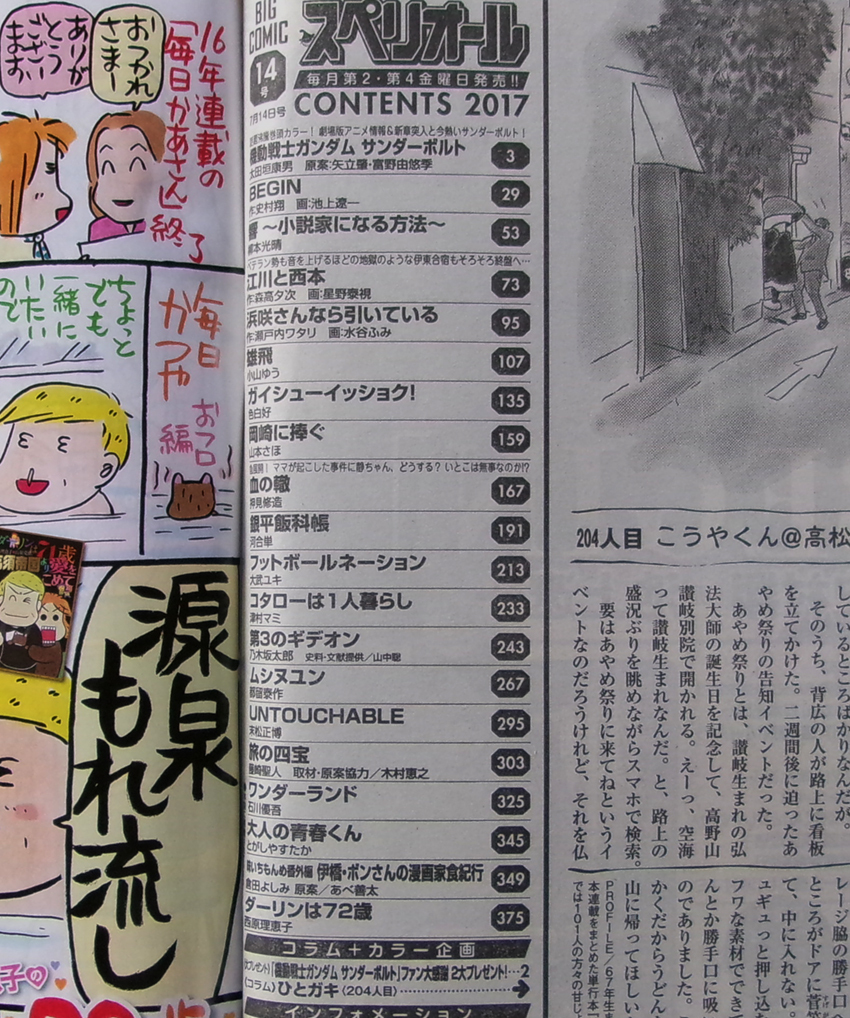 16年連載の
「毎日かあさん」終了
おつかれ
さまー
ありが
とう
ござい
ます
毎日
かつや
おフロ
編
ちょっと
でも
一緒に
いたい
ので
71歳
愛を
こめて
源泉
もれ流し
BIG
COMIC
スペリオール
14
号
7月14日号
毎月第2・第4金曜日発売!!
CONTENTS 2017
劇場版アニメ情報&新章突入と今熱いサンダーボルト!
機動戦士ガンダム サンダーボルト 3
太田垣康男 原案:矢立肇・富野由悠季
BEGIN 29
作:史村翔 画:池上遼一
響 〜小説家になる方法〜 53
柳本光晴
ベテラン勢も音を上げるほどの地獄のような伊東合宿もそろそろ終盤へ…
江川と西本 73
作:森高夕次 画:星野泰視
浜咲さんなら引いている 95
作:瀬戸内ワタリ 画:水谷ふみ
雄飛 107
小山ゆう
ガイシューイッショク! 135
色白好
岡崎に捧ぐ 159
山本さほ
急展開! ママが起こした事件に静ちゃん、どうする? いとこは無事なのか!?
血の轍 167
押見修造
銀平飯科帳 191
河合単
フットボールネーション 213
大武ユキ
コタローは1人暮らし 233
津村マミ
第3のギデオン 243
乃木坂太郎 史料・文献提供/山中聡
ムシヌユン 267
都留泰作
UNTOUCHABLE 295
末松正博
旅の四宝 303
篠崎聖人 取材・原案協力/木村惠之
ワンダーランド 325
石川優吾
大人の青春くん 345
とがしやすたか
味いちもんめ番外編 伊橋・ボンさんの漫画家食紀行 349
倉田よしみ 原案/あべ善太
ダーリンは72歳 375
西原理恵子
コラム+カラー企画
「機動戦士ガンダム サンダーボルト」ファン大感謝 2大プレゼント!…2
〈コラム〉ひとガキ〈204人目〉
インフォメーション
204人目 こうやくん@高松
しているところばかりなんだが。
そのうち、背広の人が路上に看板
を立てかけた。二週間後に迫ったあ
やめ祭りの告知イベントだった。
あやめ祭りとは、讃岐生まれの弘
法大師の誕生日を記念して、高野山
讃岐別院で開かれる。えーっ、空海
って讃岐生まれなんだ。と、路上の
盛況ぶりを眺めながらスマホで検索。
要はあやめ祭りに来てねというイ
ベントなのだろうけれど、それを仏
レージ脇の勝手口へ
ところがドアに菅笠
て、中に入れない。
ュギュっと押し込む
フワな素材でできて
んとか勝手口に吸
のでありました。
かくだからうどん
山に帰ってほしい
PROFILE/67年生ま
本連載をまとめた単行本
では101人の方々の甘じょ